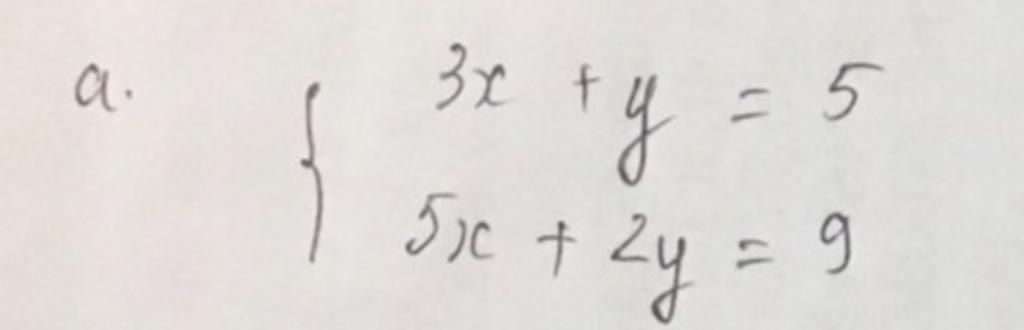 a. { 3x + y = 5
5x + 2y = 9